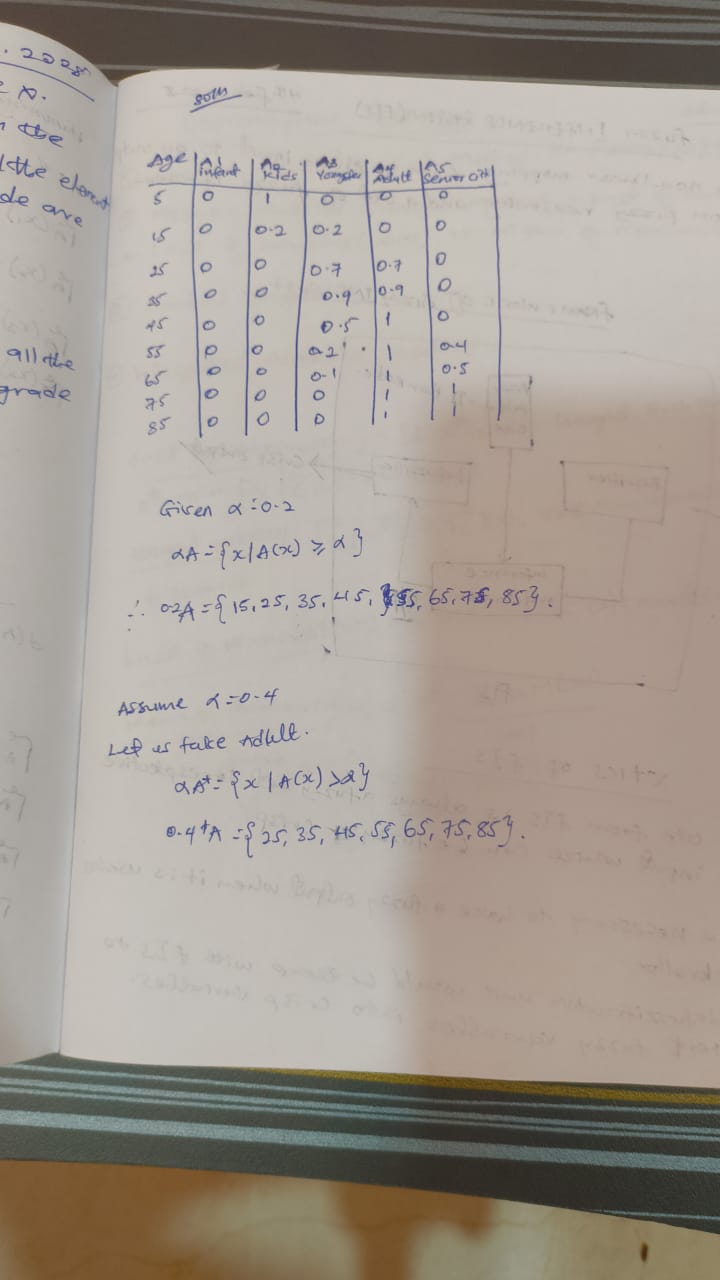 . 2025
n the
/the element
de are
all the
grade
soln
Age | A1 infant | A2 Kids | A3 Youngster | A4 Adult | A5 Senior citi
5 | 0 | 1 | 0 | 0 | 0
15 | 0 | 0.2 | 0.2 | 0 | 0
25 | 0 | 0 | 0.7 | 0.7 | 0
35 | 0 | 0 | 0.9 | 0.9 | 0
45 | 0 | 0 | 0.5 | 1 | 0
55 | 0 | 0 | 0.2 | 1 | 0.4
65 | 0 | 0 | 0.1 | 1 | 0.5
75 | 0 | 0 | 0 | 1 | 1
85 | 0 | 0 | 0 | 1 | 1
Given α = 0.2
αA = {x | A(x) ≥ α}
∴ 0.2A = {15, 25, 35, 45, 55, 65, 75, 85}.
Assume α = 0.4
Let us take Adult.
αA+ = {x | A(x) > α}
0.4+A = {25, 35, 45, 55, 65, 75, 85}.